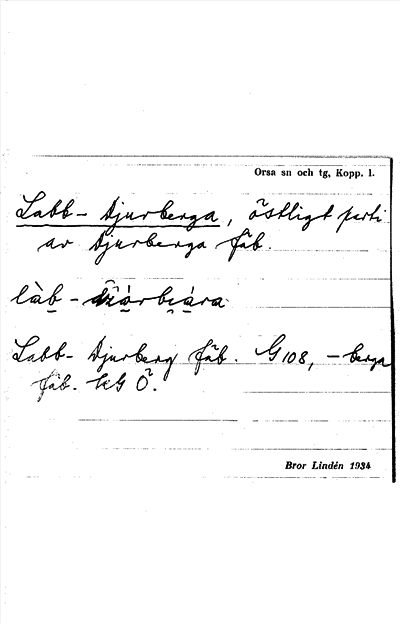 Orsa sn och tg, Kopp. l.
Labb- Djurberga, östligt parti
av Djurberga fäb.
Labb- Djurberg fäb. G 108, - berga
fäb. KG Ö.
Bror Lindén 1934